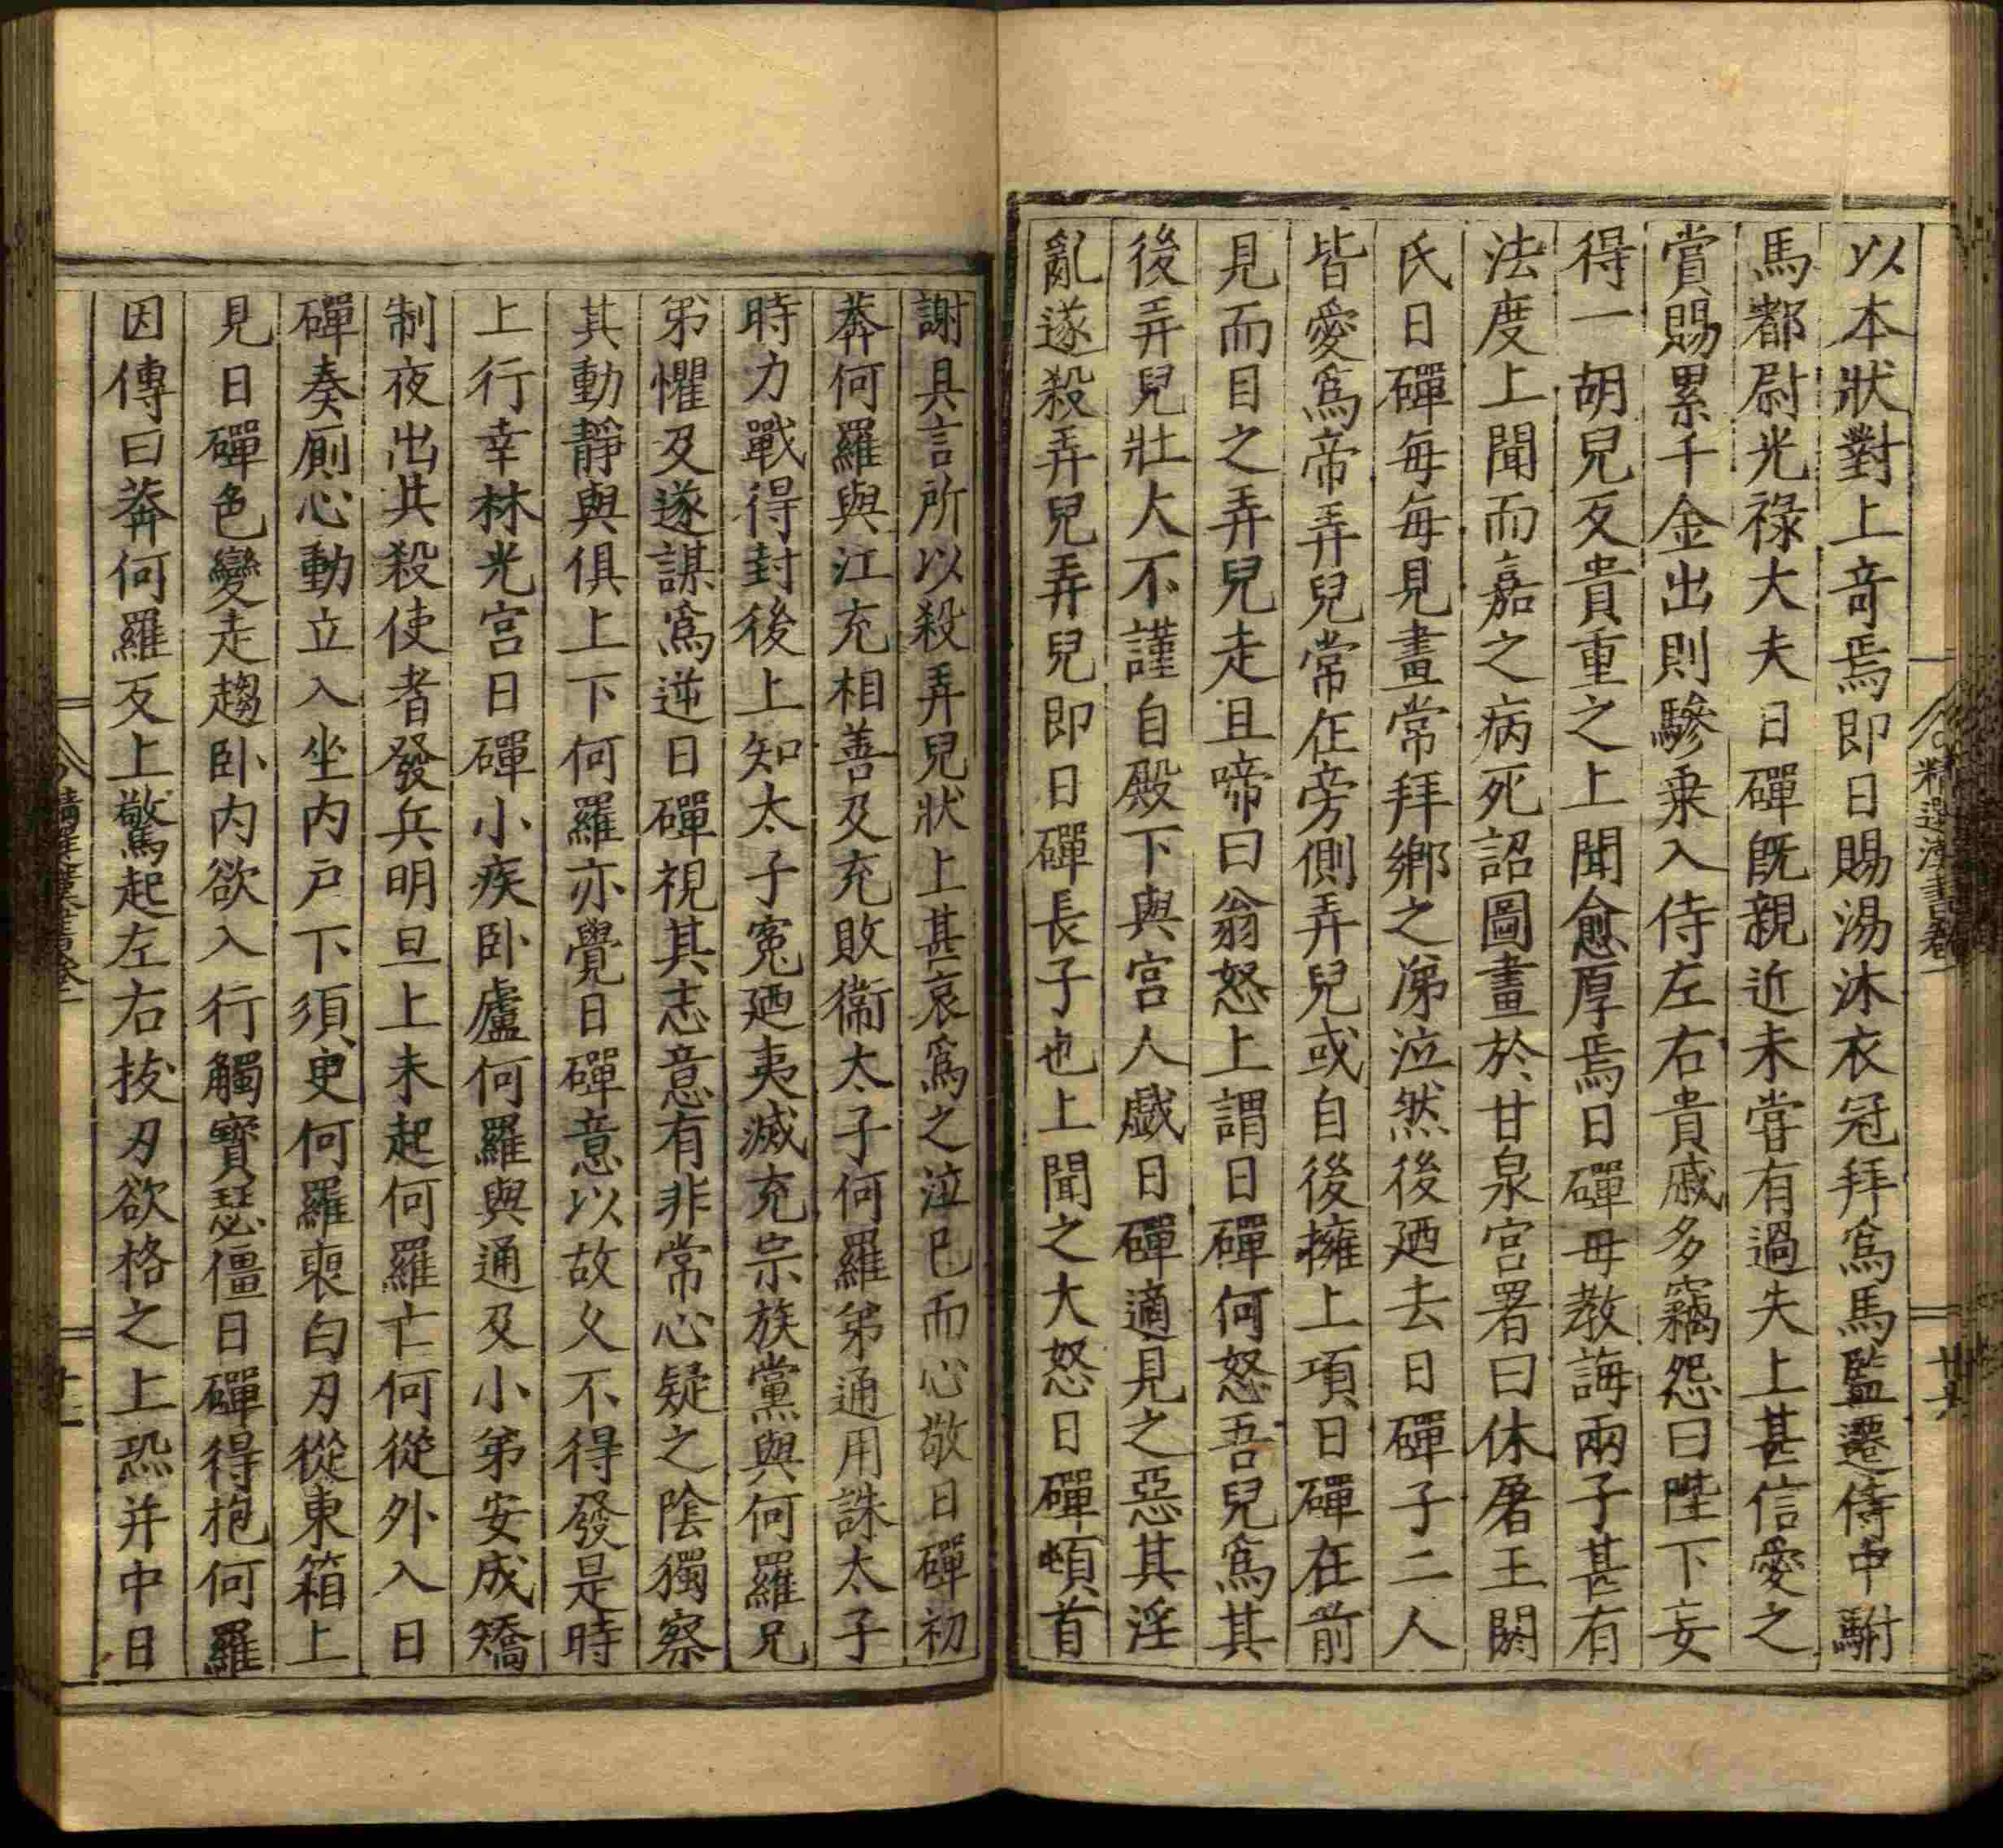 以本狀對上竒焉即日賜湯沐衣冠拜爲馬監遷侍中駙
馬都尉光祿大夫日磾旣親近未甞有過失上甚信愛之
賞賜累千金出則驂乗入侍左右貴戚多竊怨曰陛下妄
得一胡兒反貴重之上聞愈厚焉日磾毋教誨兩子甚有
法度上聞而嘉之病死詔圖畫於甘泉宮署曰休屠王閼
氏日磾每每見畫常拜鄉之涕泣然後廼去日磾子二人
皆愛爲帝弄兒常在旁側弄兒或自後擁上項日磾在前
見而目之弄兒走且啼曰翁怒上謂日磾何怒吾兒爲其
後弄兒壯大不謹自殿下與宮人戯日磾適見之惡其淫
亂遂殺弄兒弄兒即日磾長子也上聞之大怒日磾頓首
謝具言所以殺弄兒狀上甚哀爲之泣已而心敬日磾初
莽何羅與江充相善及充敗衞太子何羅弟通用誅太子
時力戰得封後上知太子寃廼夷滅充宗族黨與何羅兄
弟懼及遂謀爲逆日磾視其志意有非常心疑之陰獨察
其動靜與俱上下何羅亦覺日磾意以故乆不得發是時
上行幸林光宮日磾小疾卧廬何羅與通及小弟安成矯
制夜出共殺使者發兵明旦上未起何羅亡何從外入日
磾奏厠心動立入坐内戸下須㬰何羅褏白刃從東箱上
見日磾色變走趨卧内欲入行觸寳瑟僵日磾得抱何羅
因傳曰莽何羅反上驚起左右拔刃欲格之上恐并中日
精選漢書卷一